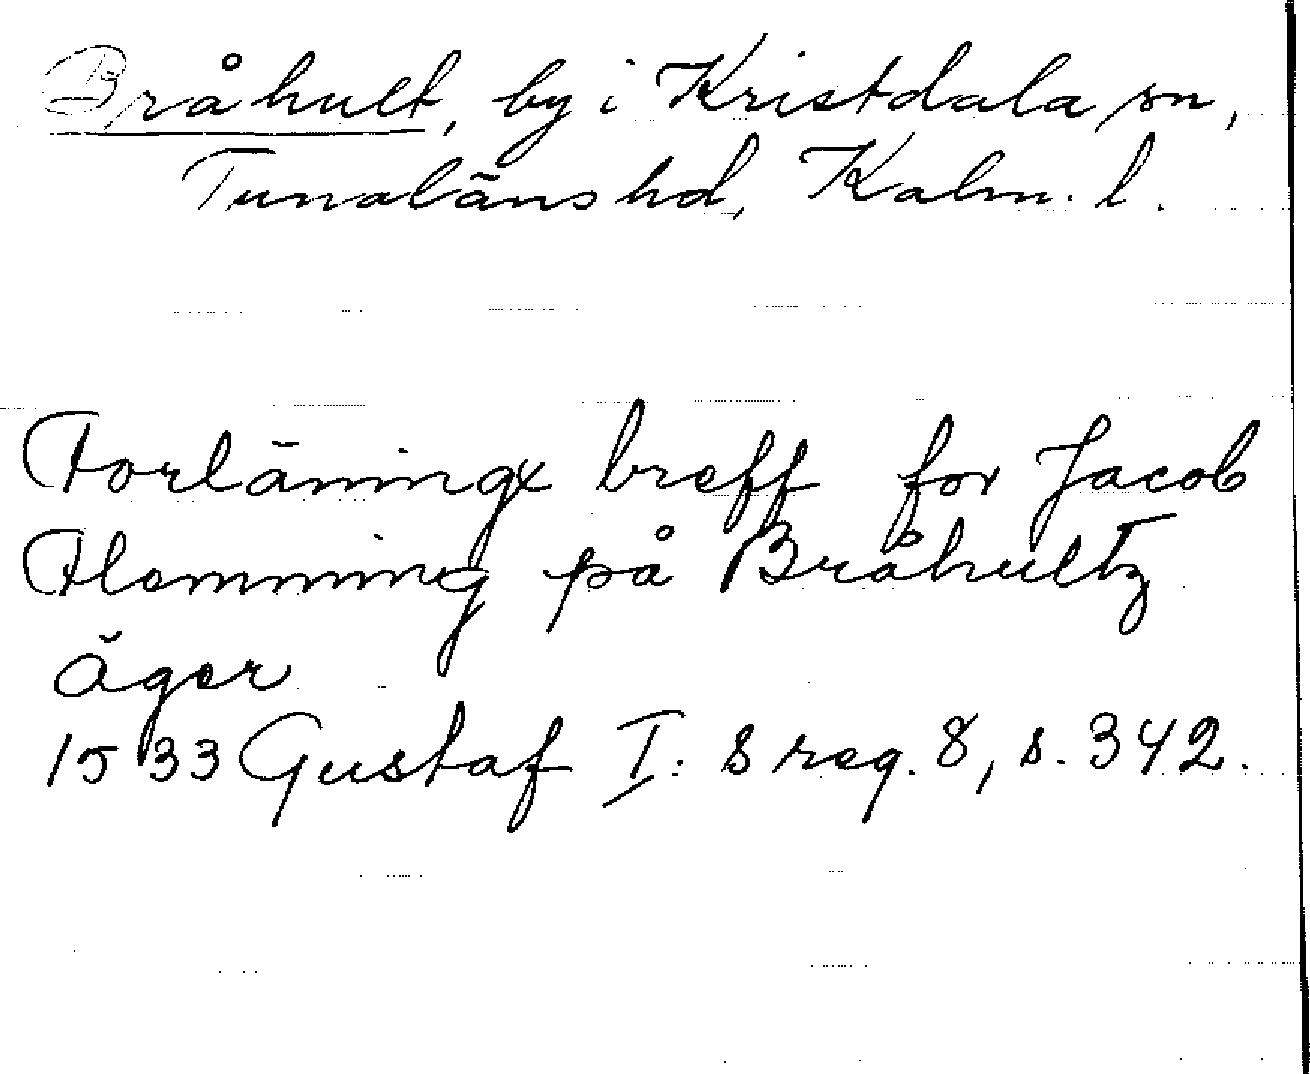 Bråhult, by i Kristdala sn,
Tunaläns hd, Kalm. l.
Forläningx breff for Jacob
Flemming på Bråhultz
äger
1533 Gustaf I: s reg. 8, s. 342.